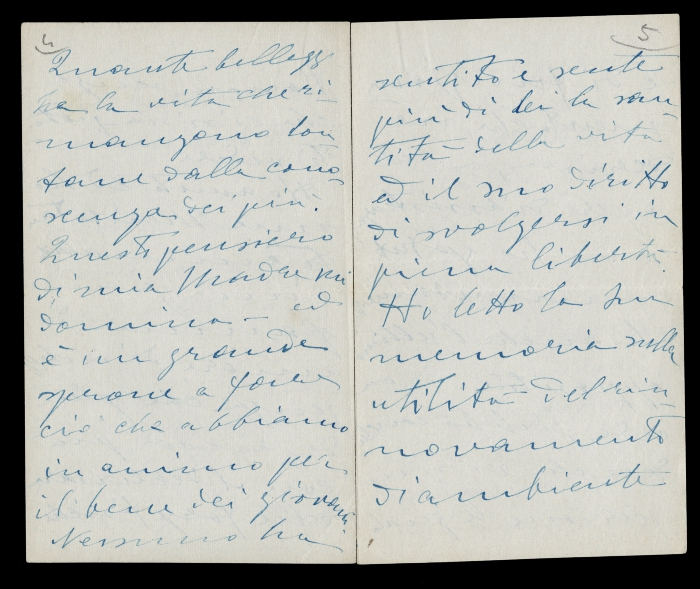 4
Quante bellezze
ha la vita che ri-
mangono lon
tane dalla cono-
scenza dei più!
Questo pensiero
di mia Madre mi
domina - ed
è un grande
sprone a fare
ciò che abbiamo
in animo per
il bene dei giovani.
Nessuno ha
5
sentito e sente
più di lei la san
tità della vita
ed il suo diritto
di svolgersi in
piena libertà.
Ho letto la sua
memoria sulla
utilità del rin-
novamento
di ambiente